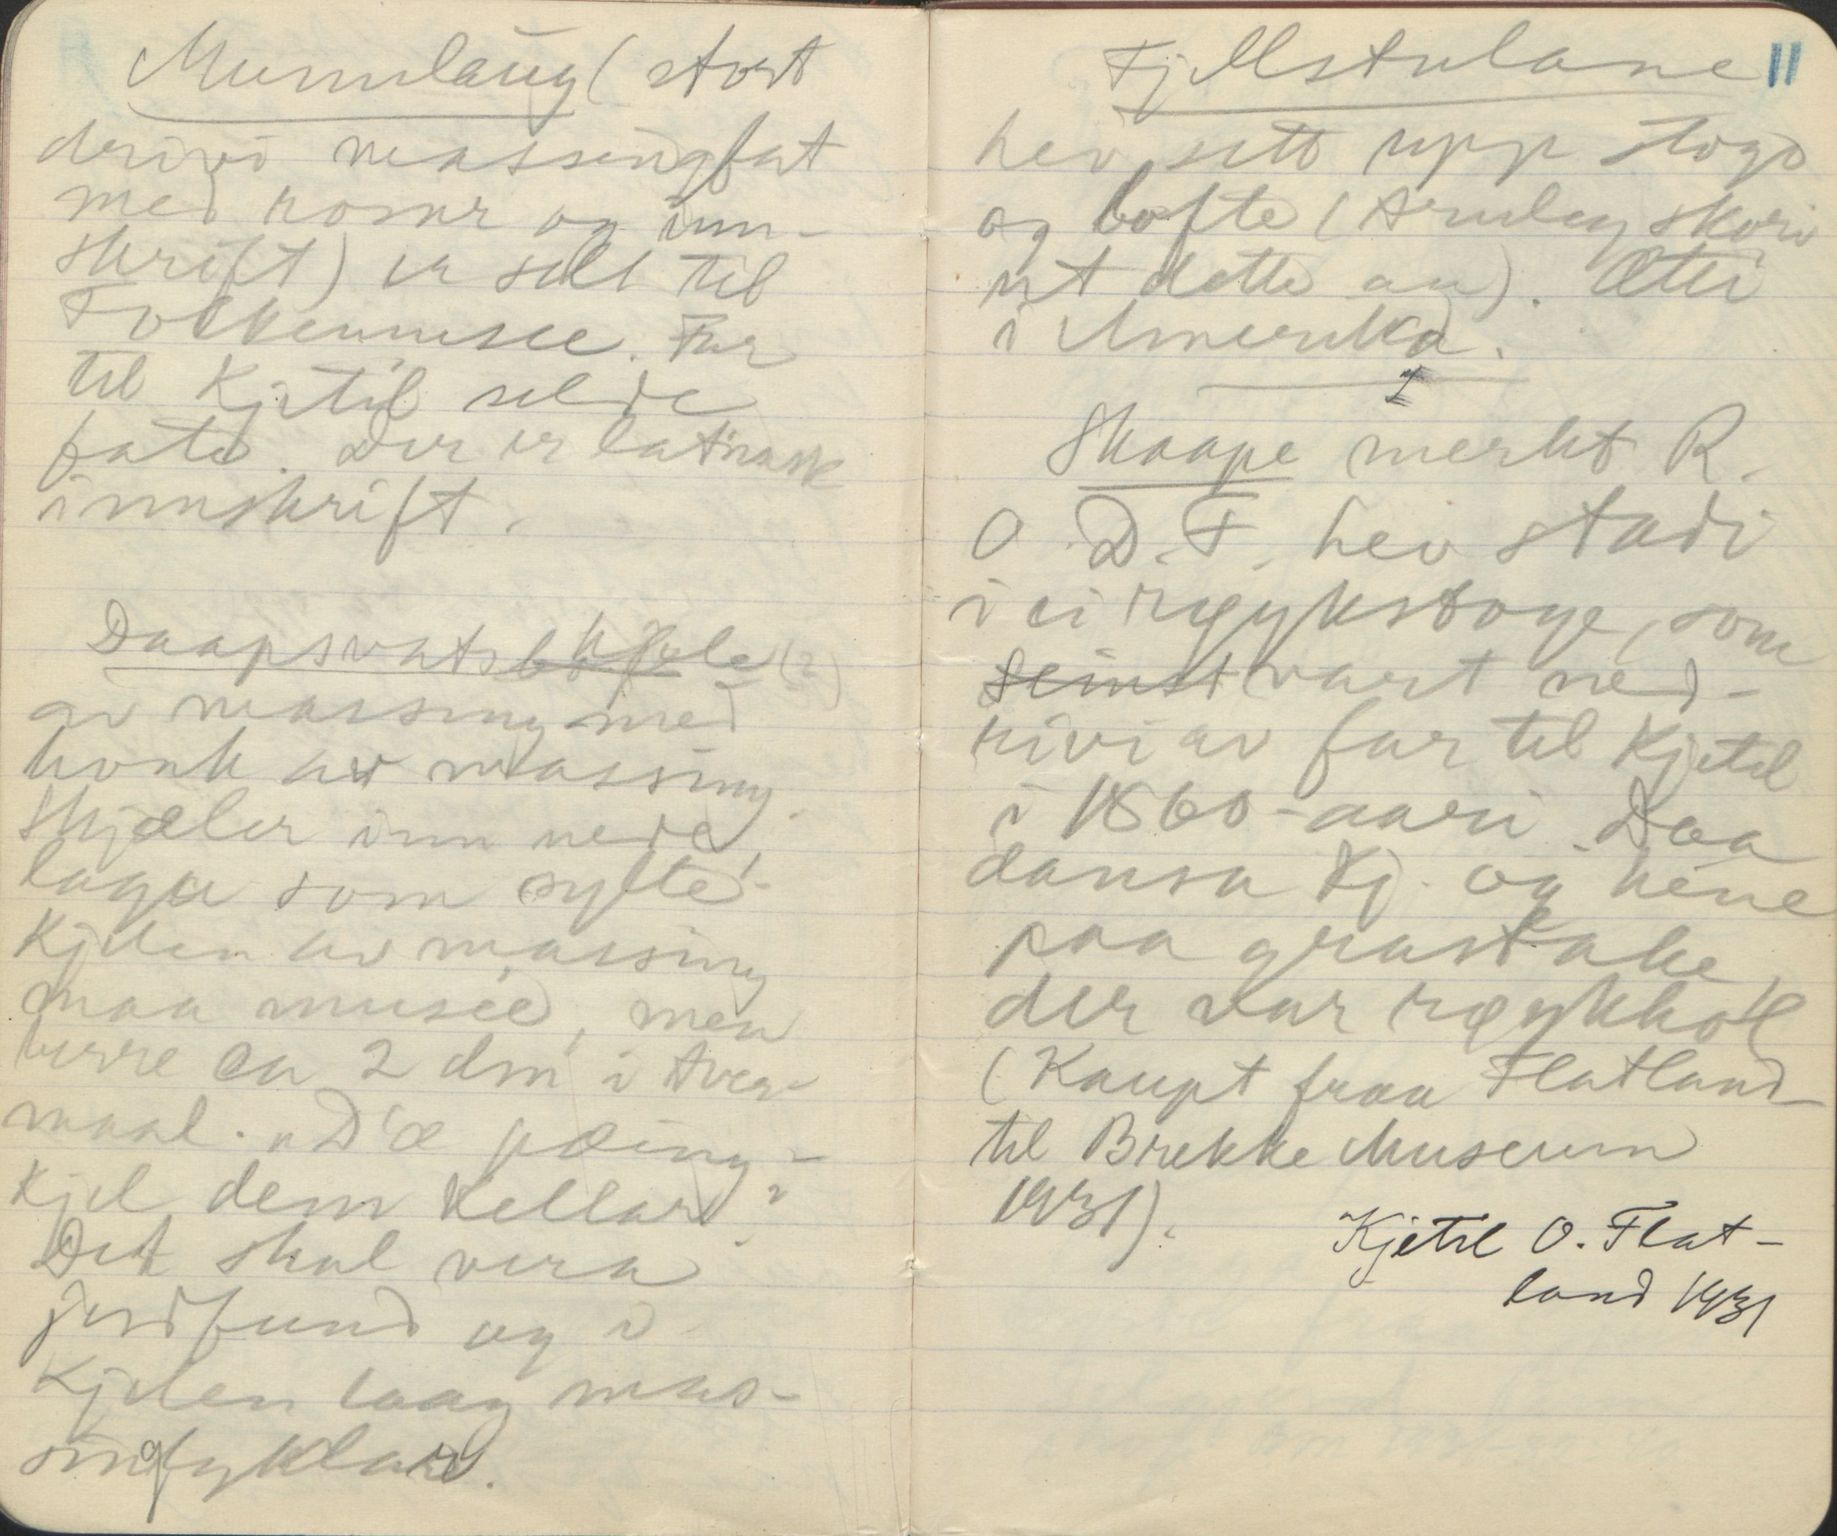 Munnlaug (stort
drivi massingfat
med rosur og inn-
skrift) er selt til
Folkemusee. Far
til Kjetil selde
fatd. Der er latinsk
innskrift.
Daapsvatskjele (?)
av massing med
honk av massing.
Skjæler inn nede,
laga som sylte-
kjelen av massing
paa musée, men
berre ca 2 dm i tver-
maal. "D'æ pæing-
kjel dem kellar".
Det skal vera
jordfund og i
kjelen laag mas-
singlyklar.
Fjellstulane 11
hev sett upp stogo
og lofte (Arnley skori
ut dette au). Ætti
i Amerika.
Skaape merkt R.
O. D. F. hev stadi
i ei røykstoge, som
seinst vart ned-
rivi av far til Kjetil
i 1860-aari. Daa
dansa Kj. og hine
paa grastake
der var røykhol
(Kaupt fraa Flatland
til Brekke Museum
1931).
Kjetil O. Flat-
land 1931